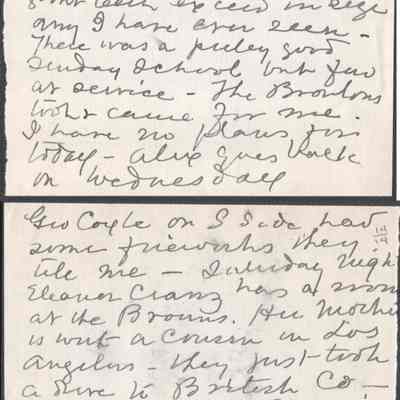 exceed in size
any I have ever seen -
There was a pretty good
Sunday School but few
at service - The Brontons
took & came for me.
I have no plans for
today - Alice goes back
on Wednesday
Geo Coyle on S Side had
some fireworks they
tell me - Saturday night
Eleanor Cranz has a room
at the Browns. Her Mother
is wut a cousin in Los
Angelus - they just took
a drive to British Co -